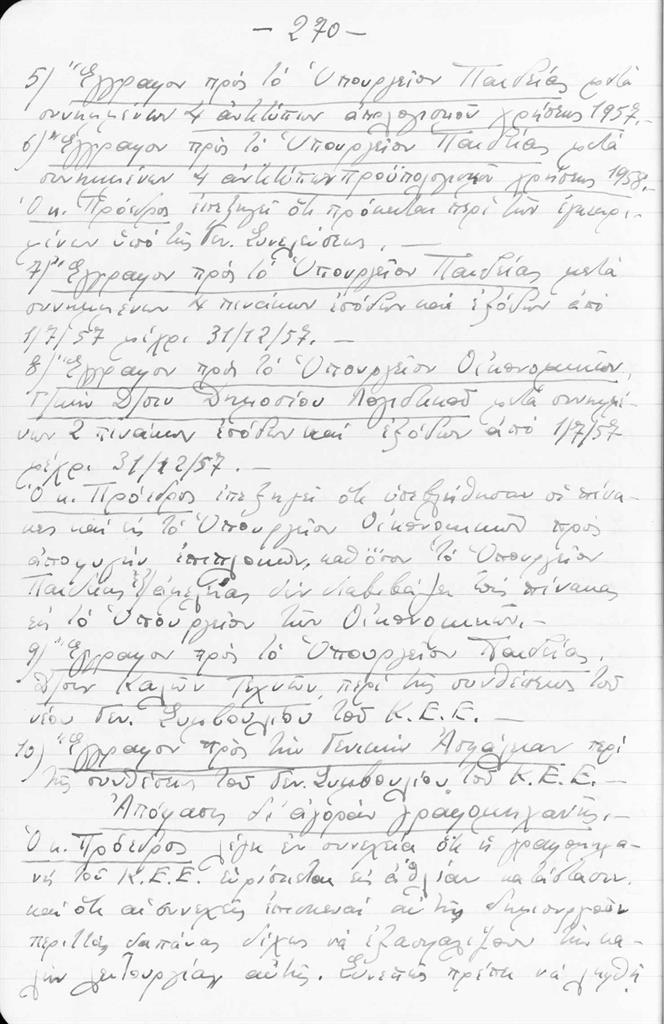 - 270 -
5) Ἔγγραφον πρὸς τὸ Ὑπουργεῖον Παιδείας μετὰ
συνημμένων 4 ἀντιτύπων ἀπολογισμοῦ χρήσεως 1957.-
6) Ἔγγραφον πρὸς τὸ Ὑπουργεῖον Παιδείας μετὰ
συνημμένων 4 ἀντιτύπων προϋπολογισμοῦ χρήσεως 1958.-
Ὁ κ. Πρόεδρος ἐπεξηγεῖ ὅτι πρόκειται περὶ τῶν ἐγκεκρι-
μένων ὑπὸ τῆς Γεν. Συνελεύσεως. -
7) Ἔγγραφον πρὸς τὸ Ὑπουργεῖον Παιδείας μετὰ
συνημμένων 4 πινάκων ἐσόδων καὶ ἐξόδων ἀπὸ
1/7/57 μέχρι 31/12/57. -
8) Ἔγγραφον πρὸς τὸ Ὑπουργεῖον Οἰκονομικῶν,
Γ/κὴν Δ/σιν Δημοσίου Λογιστικοῦ μετὰ συνημμέ-
νων 2 πινάκων ἐσόδων καὶ ἐξόδων ἀπὸ 1/7/57
μέχρι 31/12/57. -
Ὁ κ. Πρόεδρος ἐπεξηγεῖ ὅτι ὑπεβλήθησαν οἱ πίνα-
κες καὶ εἰς τὸ Ὑπουργεῖον Οἰκονομικῶν πρὸς
ἀποφυγὴν ἐπιπλοκῶν, καθ' ὅσον τὸ Ὑπουργεῖον
Παιδείας ἐξ ἀμελείας δὲν διαβιβάζει τοὺς πίνακας
εἰς τὸ Ὑπουργεῖον τῶν Οἰκονομικῶν. -
9) Ἔγγραφον πρὸς τὸ Ὑπουργεῖον Παιδείας,
Δ/σιν Καλῶν Τεχνῶν, περὶ τῆς συνθέσεως τοῦ
νέου Γεν. Συμβουλίου τοῦ Κ.Ε.Ε. -
10) Ἔγγραφον πρὸς τὴν Γενικὴν Ἀσφάλειαν περὶ
τῆς συνθέσεως τοῦ Γεν. Συμβουλίου τοῦ Κ.Ε.Ε. -
Ἀπόφασις δι' ἀγορὰν γραφομηχανῆς. -
Ὁ κ. Πρόεδρος λέγει ἐν συνεχείᾳ ὅτι ἡ γραφομηχα-
νὴ τοῦ Κ.Ε.Ε. εὑρίσκεται εἰς ἀθλίαν κατάστασιν,
καὶ ὅτι αἱ συνεχεῖς ἐπισκευαὶ αὐτῆς δημιουργοῦν
περιττὰς δαπάνας δίχως νὰ ἐξασφαλίζουν τὴν κα-
λὴν λειτουργίαν αὐτῆς. Συνεπῶς πρέπει νὰ ληφθῇ